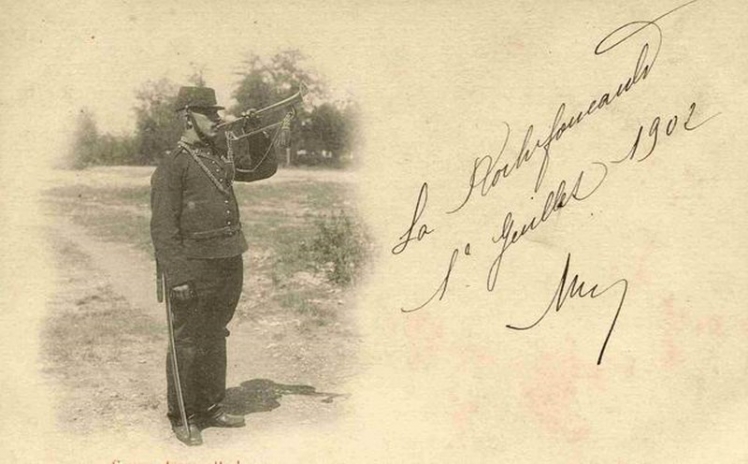 La Rochefoucauld
1º Juillet 1902